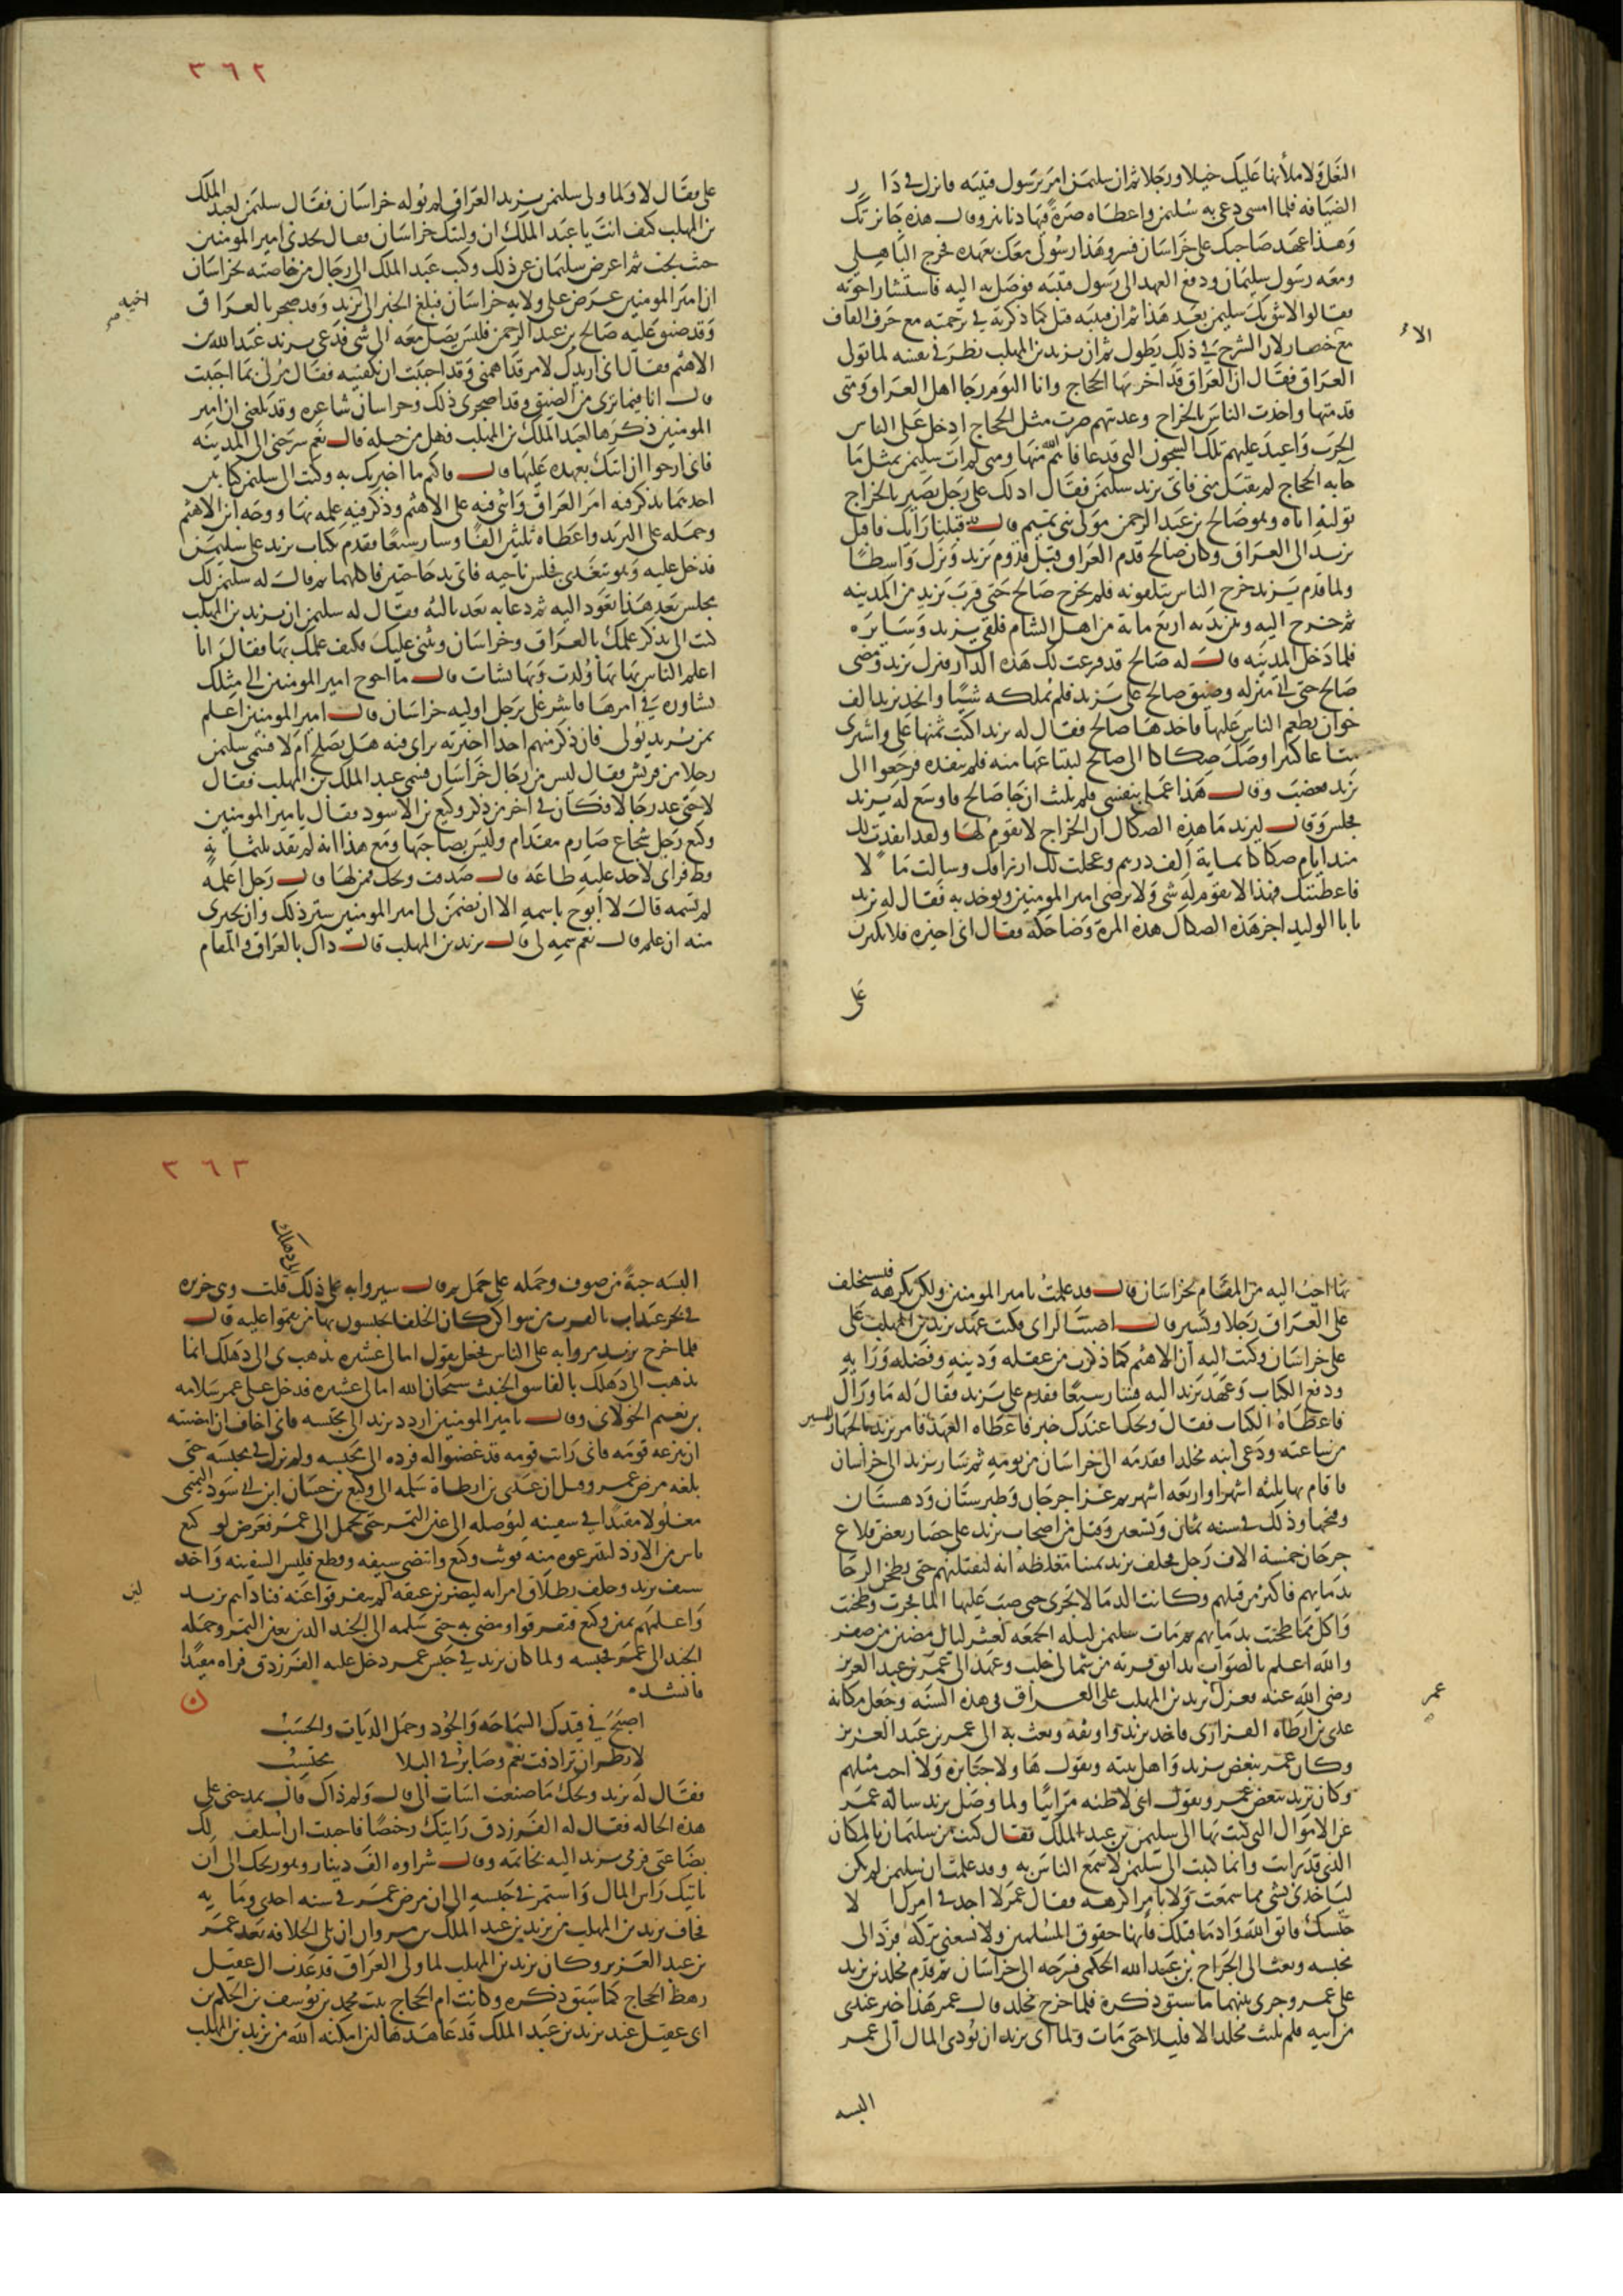 النعل ولاملأنها عليك خيلا ورجلا ثم ان سليمن امر برسول قتيبه فانزل في دار
الضيافه فلما امسى دعى به سليمن واعطاه صرة فيها دنانير وقال هذه جايزتك
وهذا عهد صاحبك على خراسان فسر وهذا رسولى معك بعهده فخرج الباهلي
ومعه رسول سليمان ودفع العهد الى رسول قتيبه فوصل به اليه فاستشار اخوته
فقالوا لا يثق بك سليمن بعد هذا ثم ان قتيبه قتل كما ذكرته في ترجمته مع حرف القاف
الا
مع خصار لان الشرح في ذلك يطول ثم ان يزيد بن المهلب نظر في نفسه لما تولى
العراق فقال ان العراق قد اخربها الحجاج وانا اليوم رجا اهل العراق ومتى
قدمتها واخذت الناس بالخراج وعذبتهم صرت مثل الحجاج ادخل على الناس
الحرب واعيد عليهم تلك السجون التى قد عافاهم الله منها ومتى لم ات سليمن بمثل ما
جابه الحجاج لم يقبل منى فاتى يزيد سليمن فقال ادلك على رجل بصير بالخراج
توليه اياه وهو صالح بن عبد الرحمن مولى بنى تميم قال قد قبلنا رايك فاقبل
يزيد الى العراق وكان صالح قدم العراق قبل قدوم يزيد ونزل واسطا
ولما قدم يزيد خرج الناس يتلقونه فلم يخرج صالح حتى قرب يزيد من المدينه
ثم خرج اليه وبين يديه اربع مايه من اهل الشام فلقي يزيد وسايره
فلما دخل المدينه قال له صالح قد فرغت لك هذه الدار فنزل يزيد ومضى
صالح حتى اتى منزله وضيق صالح على يزيد فلم يملكه شيا واتخذ يزيد الف
خوان يطعم الناس عليها فاخذها صالح فقال له يزيد اكتب ثمنها على واشترى
متاعا كثيرا وصك صكاكا الى صالح لبتاعها منه فلم ينفذه فرجعوا الى
يزيد فغضب وقال هذا عملي بنفسى فلم يلبث ان جا صالح فاوسع له يزيد
فجلس وقال ليزيد ما هذه الصكاك ان الخراج لا يقوم لها ولقد انفذت لك
منذ ايام صكاكا بماية الف درهم وعجلت لك ارزاقك وسالت مالا
فاعطيتك فهذا لا يقوم له شى ولا يرضى امير المومنين وتوخذ به فقال له يزيد
يا ابا الوليد اجز هذه الصكاك هذه المرة وضاحكه فقال انى اجيزه فلا تكثرن
على
٣٦٢
على فقال لا ولما ولى سليمن يزيد العراق لم يوله خراسان فقال سليمن لعبد الملك
بن المهلب كيف انت يا عبد الملك ان وليتك خراسان فقال يجدنى امير المومنين
حيث يحب ثم اعرض سليمان عن ذلك وكتب عبد الملك الى رجال من خاصته بخراسان
ان امير المومنين عرض على ولايه خراسان فبلغ الخبر الى يزيد وقد ضجر بالعراق
اخيه
وقد ضيق عليه صالح بن عبد الرحمن فليس يصل معه الى شى فدعى يزيد عبد الله بن
الاهتم فقال انى اريدك لامر قد اهمنى وقد احببت ان تكفينيه فقال مرنى بما احببت
قال انا فيما ترى من الضيق وقد اضجرنى ذلك وخراسان شاغره وقد بلغنى ان امير
المومنين ذكرها لعبد الملك بن المهلب فهل من حيله قال نعم سرحنى الى المدينه
فانى ارجوا ان اتيك بعهده عليها قال فاكتم ما اخبرتك به وكتب الى سليمن كتابين
احدهما يذكر فيه امر العراق واثنى فيه على الاهتم وذكر فيه علمه بها ووجه ابن الاهتم
وحمله على البريد واعطاه ثلثين الفا وسار سبعا فقدم بكتاب يزيد على سليمن
فدخل عليه وهو يتغدى فجلس ناحيه فاتى بدجاجتين فاكلهما ثم قال له سليمن لك
مجلس بعد هذا تعود اليه ثم دعا به بعد ثالثه فقال له سليمن ان يزيد بن المهلب
كتب الى يذكر علمك بالعراق وخراسان ويثنى عليك فكيف علمك بها فقال انا
اعلم الناس بها بها ولدت وبها نشات قال ما احوج امير المومنين الى مثلك
يشاوره في امرها فاشر على برجل اوليه خراسان قال امير المومنين اعلم
بمن يريد يولى فان ذكر منهم احدا اخبرته براى فيه هل يصلح ام لا فسمى سليمن
رجلا من قريش فقال ليس من رجال خراسان فسمى عبد الملك بن المهلب فقال
لا حتى عدد رجالا فكان في اخر من ذكر وكيع بن الاسود فقال يا امير المومنين
وكيع رجل شجاع صارم مقدام وليس بصاحبها ومع هذا انه لم يقد ثلثمايه
قط فراى لاحد عليه طاعه قال صدقت ويحك فمن لها قال رجل اعلمه
لم تسمه قال لا ابوح باسمه الا ان يضمن لى امير المومنين ستر ذلك وان يجيرنى
منه ان علم قال نعم سمه لى قال يزيد بن المهلب قال ذاك بالعراق والمقام
بها احب اليه من المقام بخراسان قال قد علمت يا امير المومنين ولكن تكرهه فيستخلف
على العراق رجلا ويسير قال اصبت الراى فكتب عهد يزيد بن المهلب على
على خراسان وكتب اليه ان الاهتم كما ذكرت من عقله ودينه وفضله ورايه
ودفع الكتاب وعهد يزيد اليه فسار سبعا فقدم على يزيد فقال له ما وراك
فاعطاه الكتاب فقال ويحك اعندك خبر فاعطاه العهد فامر يزيد بالجهاز للمسير
من ساعته ودعى ابنه مخلدا فقدمه الى خراسان من يومه ثم سار يزيد الى خراسان
فاقام بها ثلثه اشهر او اربعه اشهر ثم غزا جرجان وطبرستان ودهستان
وفتحها وذلك في سنه ثمان وتسعين وقتل من اصحاب يزيد على حصار بعض قلاع
جرجان خمسة الاف رجل فحلف يزيد يمينا مغلظه انه ليقتلنهم حتى يطحن الرحا
بدمايهم فاكثر من قتلهم وكانت الدما لا تجرى حتى صب عليها الما فجرت وطحنت
واكل مما طحنت بدمايهم ثم مات سليمن ليله الجمعه لعشر ليال مضين من صفر
والله اعلم بالصواب بدابق قريه من شمالى حلب وعهد الى عمر بن عبد العزيز
رضى الله عنه فعزل يزيد بن المهلب على العراق في هذه السنه وجعل مكانه
عمر
عدى بن ارطاه الفزارى فاخذ يزيد واوثقه وبعث به الى عمر بن عبد العزيز
وكان عمر يبغض يزيد واهل بيته ويقول هاولا جبابره ولا احب مثلهم
وكان يزيد يبغض عمر ويقول انى لاظنه مرائيا ولما وصل يزيد ساله عمر
عن الاموال التى كتب بها الى سليمن بن عبد الملك فقال كنت من سليمان بالمكان
الذى قد رايت وانما كتبت الى سليمن لاسمع الناس به وقد علمت ان سليمن لم يكن
لياخذنى بشى مما سمعت ولا بامر اكرهه فقال عمر لا اجد في امرك الا
حبسك فاتق الله واد ما قبلك فانها حقوق المسلمين ولا يسعنى تركه فرد الى
محبسه وبعث الى الجراح بن عبد الله الحكمى فسرحه الى خراسان ثم قدم مخلد بن يزيد
على عمر وجرى بينهما ما سبق ذكره فلما خرج مخلد قال عمر هذا خير عندى
من ابيه فلم يلبث مخلد الا قليلا حتى مات ولما ابى يزيد ان يودى المال الى عمر
البسه
٣٦٣
الى دهلك
البسه جبة من صوف وحمله على جمل ثم قال سيروا به على ذلك قلت وهى جزيره
في بحر عيذاب بالقرب من سواكن كان الخلفا يحبسون بها من نقموا عليه قال
فلما خرج يزيد مروا به على الناس فجعل يقول اما لى عشيره يذهب بى الى دهلك انما
يذهب الى دهلك بالفاسق الخبيث سبحان الله اما لى عشيره فدخل على عمر سلامه
بن نعيم الخولانى وقال يا امير المومنين اردد يزيد الى محبسه فانى اخاف ان امضيته
ان ينزعه قومه فانى رايت قومه قد غضبوا له فرده الى محبسه ولم يزل في محبسه حتى
بلغه مرض عمر وقيل ان عدى بن ارطاة سلمه الى وكيع بن حسان ابن ابى سود التميمى
مغلولا مقيدا في سفينه ليوصله الى عين التمر حتى يحمل الى عمر فعرض لوكيع
ناس من الازد لينتزعوه منه فوثب وكيع وانتضى سيفه وقطع قلس السفينه واخذ
سيف يزيد وحلف بطلاق امراته ليضربن عنقه ان لم يتفرقوا عنه فناداهم يزيد
لئن
واعلمهم يمين وكيع فتفرقوا ومضى به حتى سلمه الى الجند الذين بعين التمر وحمله
الجند الى عمر فحبسه ولما كان يزيد في حبس عمر دخل عليه الفرزدق فراه مقيدا
فانشده
اصبح في قيدك السماحه والجود وحمل الديات والحسب
لا بطر ان ترادفت نعم وصابر في البلا محتسب
فقال له يزيد ويحك ما صنعت اسات الى قال ولم ذاك قال تمدحنى على
هذه الحاله فقال له الفرزدق رايتك رخيصا فاحببت ان اسلف لك
بضاعتى فرمى يزيد اليه بخاتمه وقال شراوه الف دينار وهو ربحك الى ان
ياتيك راس المال واستمر في حبسه الى ان مرض عمر في سنه احدى ومايه
فخاف يزيد بن المهلب من يزيد بن عبد الملك بن مروان ان يلى الخلافه بعد عمر
بن عبد العزيز وكان يزيد بن المهلب لما ولى العراق قد عذب ال عقيل
رهط الحجاج كما سبق ذكره وكانت ام الحجاج بنت محمد بن يوسف بن الحكم بن
ابى عقيل عند يزيد بن عبد الملك قد عاهدها لئن امكنه الله من يزيد بن المهلب